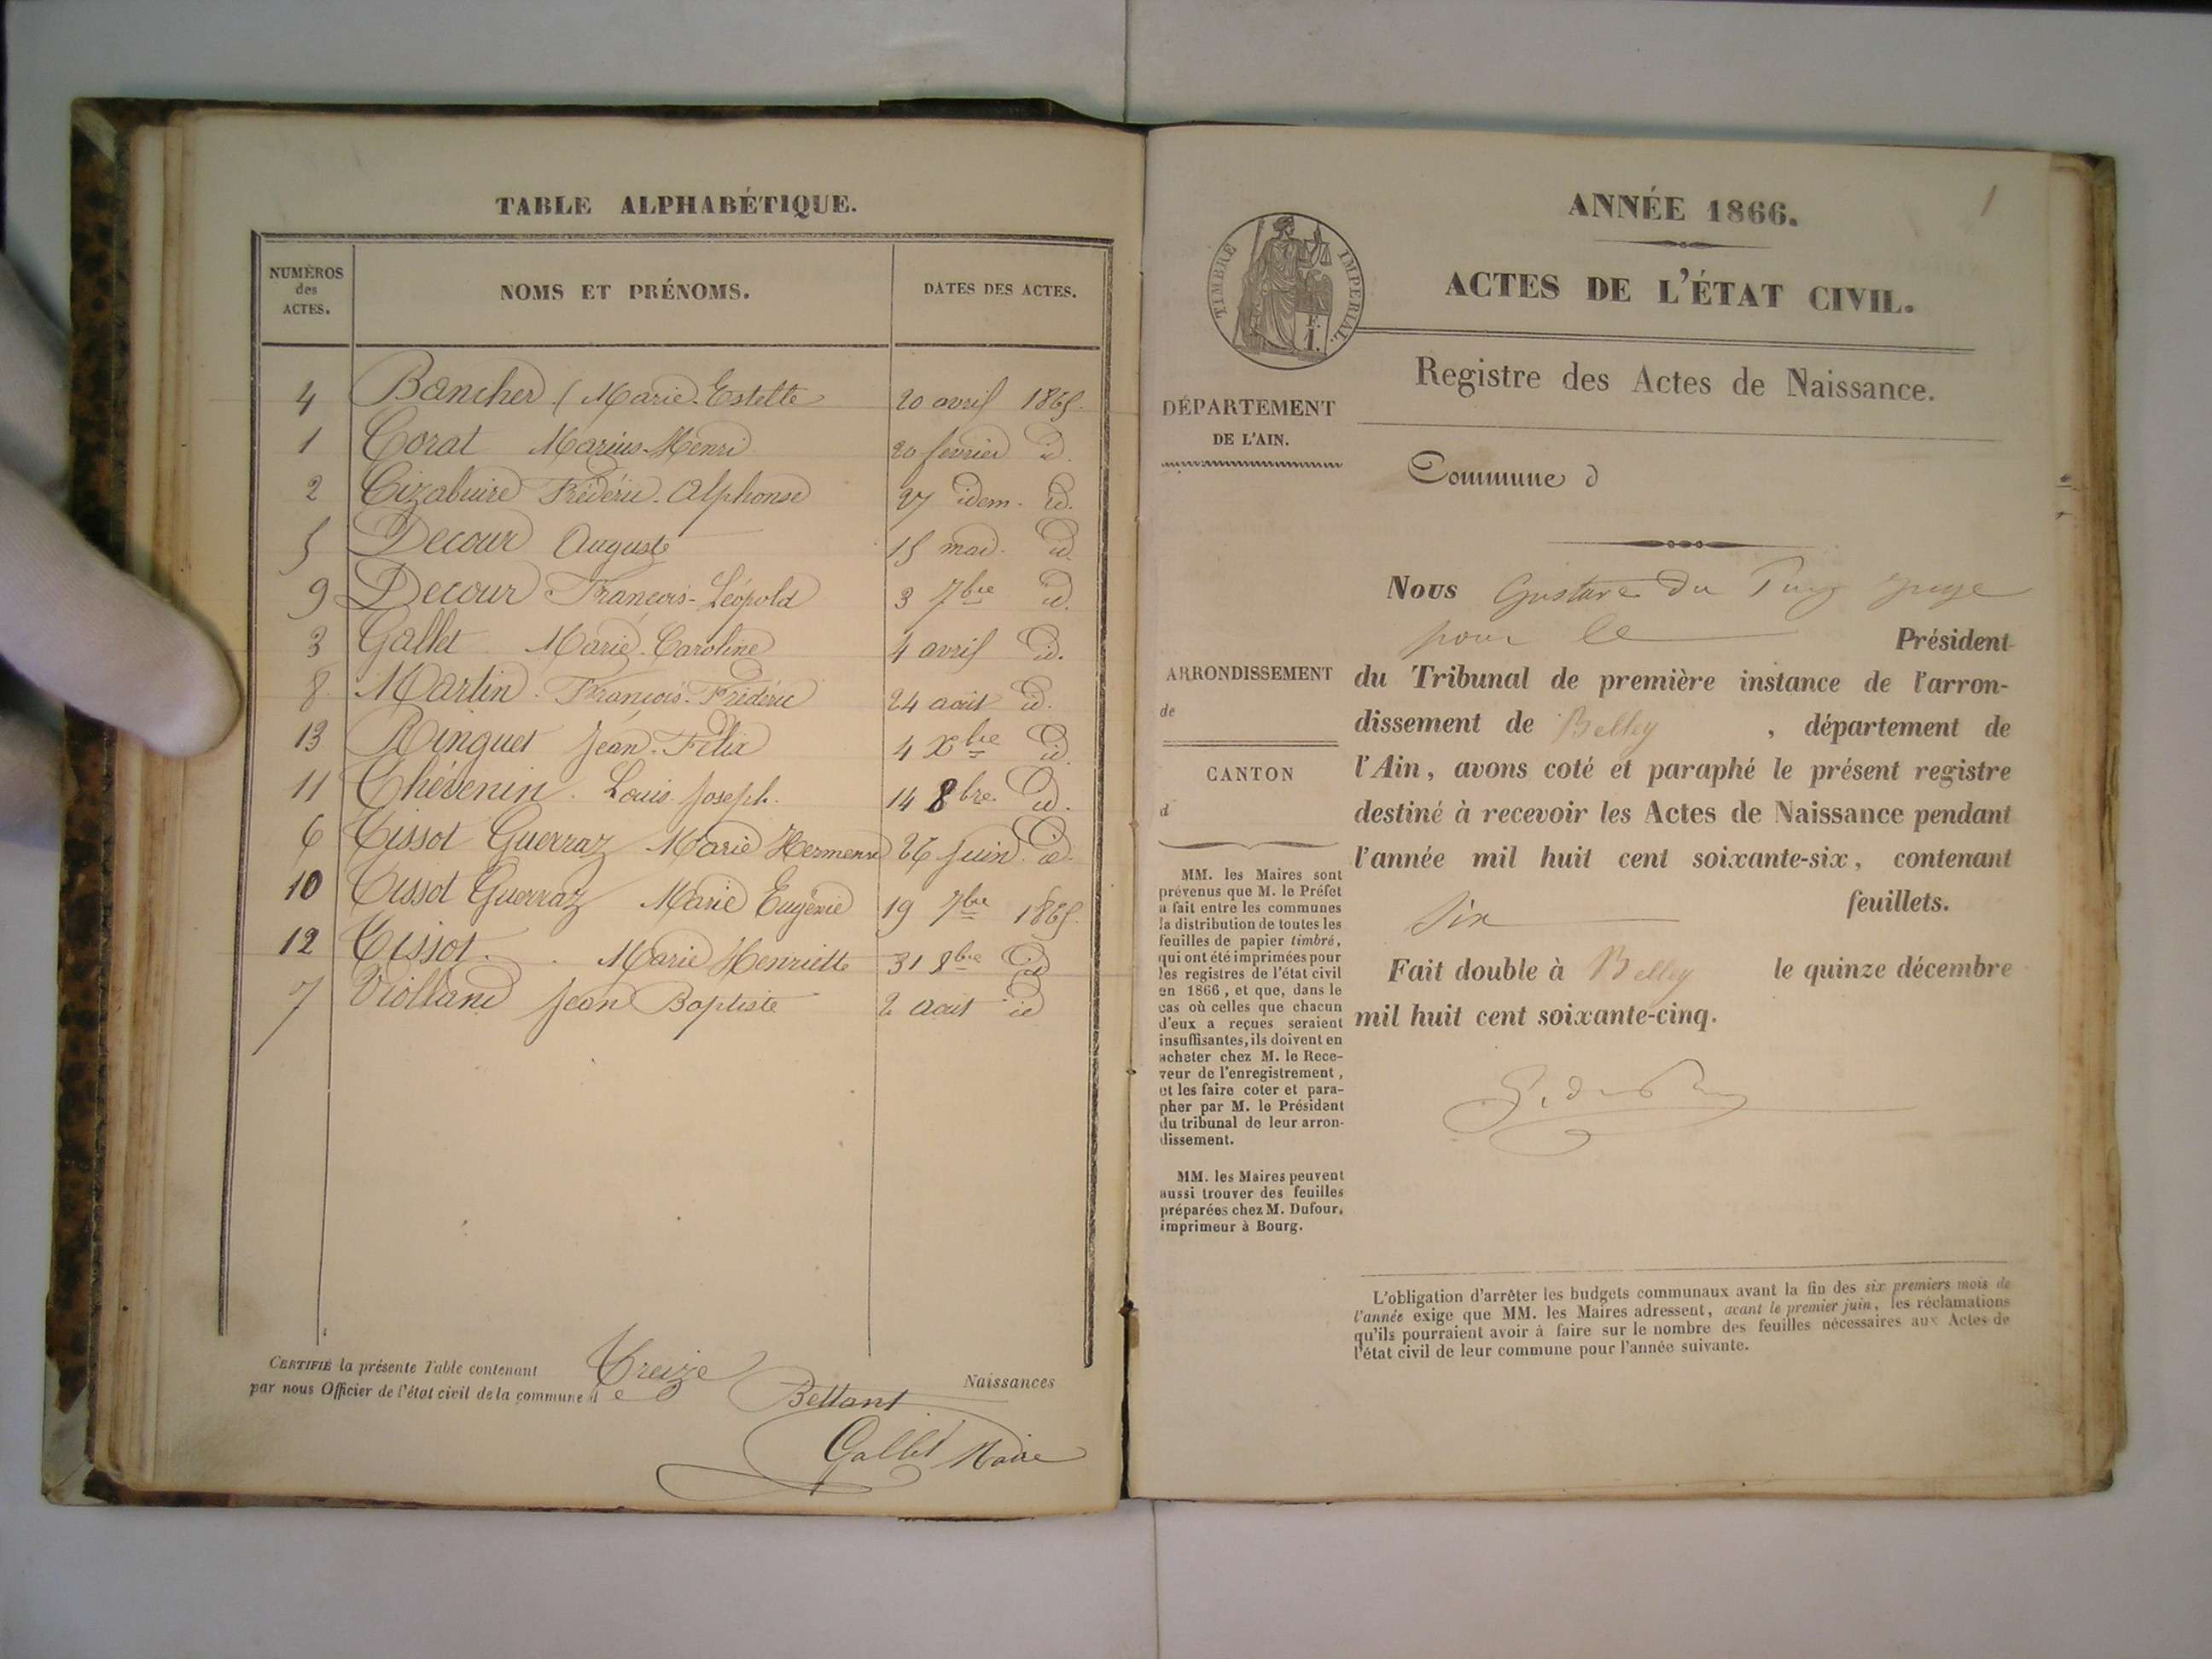 TABLE ALPHABÉTIQUE.
NUMÉROS des ACTES. NOMS ET PRÉNOMS. DATES DES ACTES.
4 Bancher (Marie-Estelle 20 avril 1865.
1 Corat Marius-Henri 20 fevrier id.
2 Cizabuire Frédéric-Alphonse 27 idem. id.
5 Decour Auguste 15 mai. id.
9 Decour François-Léopold 3 7bre id.
3 Gallet Marie-Caroline 4 avril id.
8. Martin. François-Frédéric 24 août id.
13 Ringuet Jean-Félix 4 Xbre id
11 Thévenin. Louis-Joseph. 14 8bre id.
6 Tissot Guerraz Marie 26 juin. id.
10 Tissot Guerraz Marie Eugénie 19 7bre 1865.
12 Tissot. Marie Henriette 31 8bre id
7 Violland Jean Baptiste 2 aout id
CERTIFIÉ la présente Table contenant Treize Naissances
par nous Officier de l'état civil de la commune de
Bettant
Gallet Maire
1
ANNÉE 1866.
ACTES DE L'ÉTAT CIVIL.
TIMBRE IMPÉRIAL.
F.
1.
Registre des Actes de Naissance.
DÉPARTEMENT
DE L'AIN.
Commune d
Nous Gustave Du Puy juge
pour le Président
ARRONDISSEMENT
de
CANTON
d
du Tribunal de première instance de l'arron-
dissement de Belley , département de
l'Ain, avons coté et paraphé le présent registre
destiné à recevoir les Actes de Naissance pendant
l'année mil huit cent soixante-six, contenant
six feuillets.
Fait double à Belley le quinze décembre
mil huit cent soixante-cinq.
MM. les Maires sont
prévenus que M. le Préfet
a fait entre les communes
la distribution de toutes les
feuilles de papier timbré,
qui ont été imprimées pour
les registres de l'état civil
en 1866, et que, dans le
cas où celles que chacun
d'eux a reçues seraient
insuffisantes, ils doivent en
acheter chez M. le Rece-
veur de l'enregistrement,
et les faire coter et para-
pher par M. le Président
du tribunal de leur arron-
dissement.
MM. les Maires peuvent
aussi trouver des feuilles
préparées chez M. Dufour,
imprimeur à Bourg.
L'obligation d'arrêter les budgets communaux avant la fin des six premiers mois de
l'année exige que MM. les Maires adressent, avant le premier juin, les réclamations
qu'ils pourraient avoir à faire sur le nombre des feuilles nécessaires aux Actes de
l'état civil de leur commune pour l'année suivante.